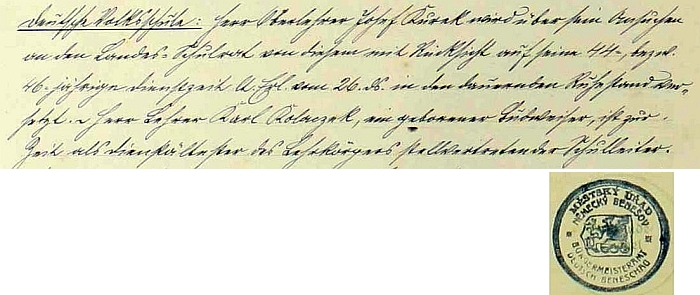 Deutsche Volksschule: Herr Oberlehrer Josef Kurek wird über sein Ansuchen
an den Landes-Schulrat von diesem mit Rücksicht auf seine 44-, bezw.
46-jährige Dienstzeit lt. Erl. vom 26. ds. in den dauernden Ruhestand ver-
setzt. - Herr Lehrer Karl Kolaczek, ein geborener Budweiser, ist zur
Zeit als dienstältester des Lehrkörpers stellvertretender Schulleiter.
MĚSTSKÝ ÚŘAD
NĚMECKÝ BENEŠOV
BÜRGERMEISTERAMT
DEUTSCH BENESCHAU